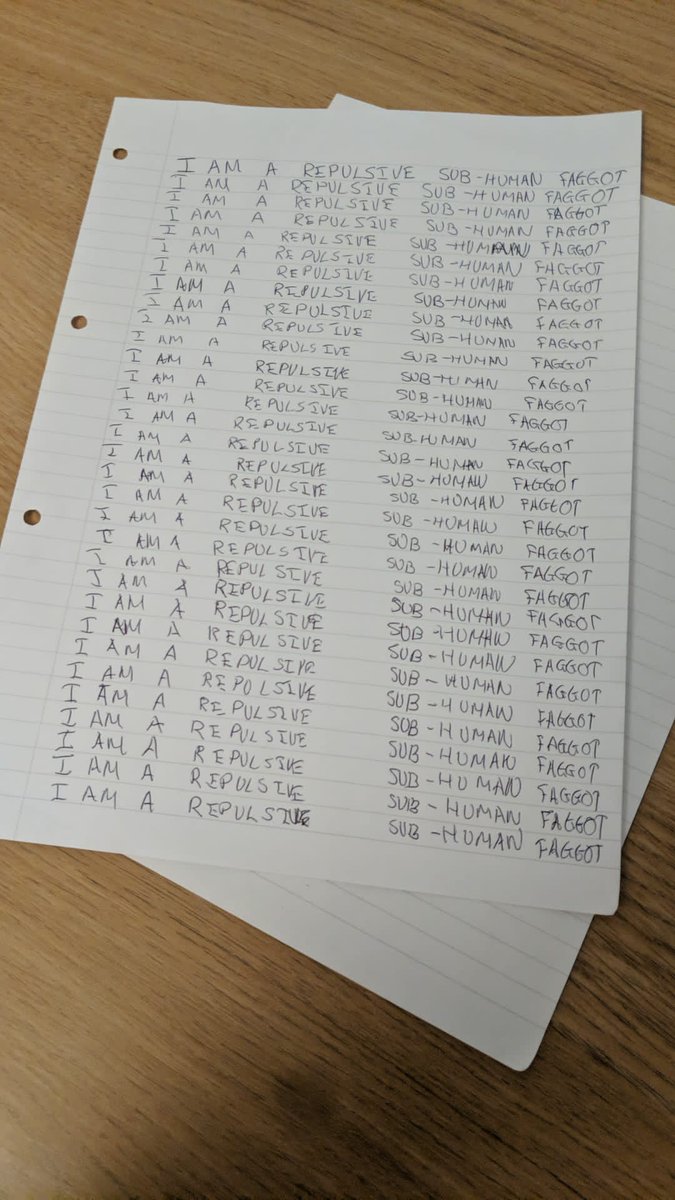 I AM A REPULSIVE SUB-HUMAN FAGGOT
I AM A REPULSIVE SUB-HUMAN FAGGOT
I AM A REPULSIVE SUB-HUMAN FAGGOT
I AM A REPULSIVE SUB-HUMAN FAGGOT
I AM A REPULSIVE SUB-HUMAN FAGGOT
I AM A REPULSIVE SUB-HUMAN FAGGOT
I AM A REPULSIVE SUB-HUMAN FAGGOT
I AM A REPULSIVE SUB-HUMAN FAGGOT
I AM A REPULSIVE SUB-HUMAN FAGGOT
I AM A REPULSIVE SUB-HUMAN FAGGOT
I AM A REPULSIVE SUB-HUMAN FAGGOT
I AM A REPULSIVE SUB-HUMAN FAGGOT
I AM A REPULSIVE SUB-HUMAN FAGGOT
I AM A REPULSIVE SUB-HUMAN FAGGOT
I AM A REPULSIVE SUB-HUMAN FAGGOT
I AM A REPULSIVE SUB-HUMAN FAGGOT
I AM A REPULSIVE SUB-HUMAN FAGGOT
I AM A REPULSIVE SUB-HUMAN FAGGOT
I AM A REPULSIVE SUB-HUMAN FAGGOT
I AM A REPULSIVE SUB-HUMAN FAGGOT
I AM A REPULSIVE SUB-HUMAN FAGGOT
I AM A REPULSIVE SUB-HUMAN FAGGOT
I AM A REPULSIVE SUB-HUMAN FAGGOT
I AM A REPULSIVE SUB-HUMAN FAGGOT
I AM A REPULSIVE SUB-HUMAN FAGGOT
I AM A REPULSIVE SUB-HUMAN FAGGOT
I AM A REPULSIVE SUB-HUMAN FAGGOT
I AM A REPULSIVE SUB-HUMAN FAGGOT
I AM A REPULSIVE SUB-HUMAN FAGGOT
I AM A REPULSIVE SUB-HUMAN FAGGOT
I AM A REPULSIVE SUB-HUMAN FAGGOT
I AM A REPULSIVE SUB-HUMAN FAGGOT